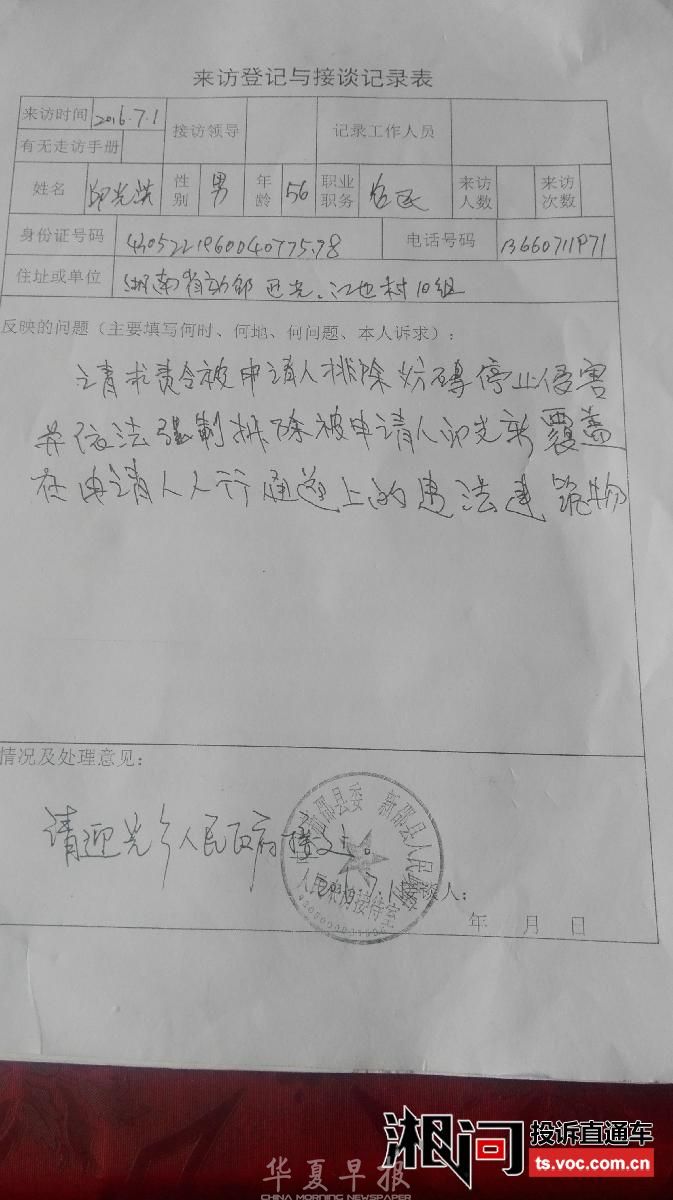 来访登记与接谈记录表
来访时间 2016.7.1 接访领导 记录工作人员
有无走访手册
姓名 邱光洪 性别 男 年龄 56 职业职务 农民 来访人数 来访次数
身份证号码 电话号码 13660711971
住址或单位 湖南省新邵 迎光 江边村10组
反映的问题（主要填写何时、何地、何问题、本人诉求）：
请求责令被申请人排除妨碍停止侵害
并依法强制排除被申请人邱光新覆盖
在申请人人行通道上的违法建筑物
情况及处理意见：
请迎光乡人民政府接访。
新邵县委 新邵县人民政府
人民来访接待室
7.1 接谈人：
年 月 日
湘问 投诉直通车
ts.voc.com.cn
华夏早报
CHINA MORNING NEWSPAPER